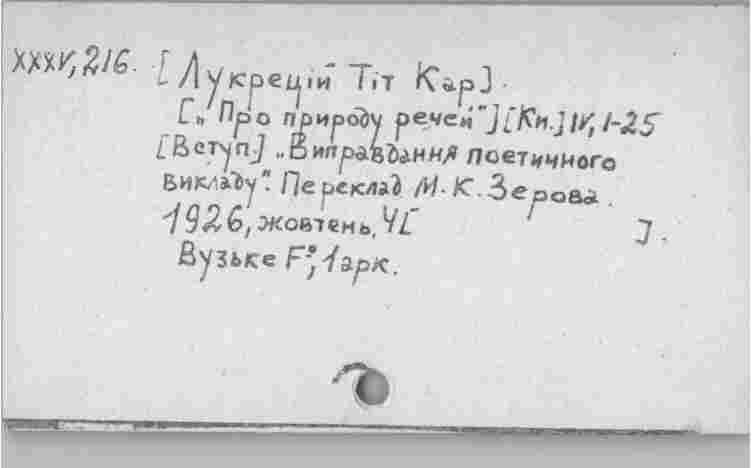 XXXV, 216. [Лукрецій Тіт Кар].
[„Про природу речей"] [Кн.] IV, 1-25
[Вступ.] „Виправдання поетичного
викладу". Переклад М. К. Зерова.
1926, жовтень, 4[ ].
Вузьке F°, 1 арк.